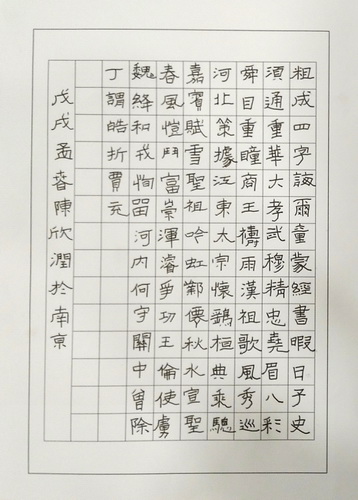 粗成四字誨爾童蒙經書暇日子史
須通重華大孝武穆精忠堯眉八彩
舜目重瞳商王禱雨漢祖歌風秀巡
河北策據江東太宗懷鷂桓典乘驄
嘉賓賦雪聖祖吟虹鄴僊秋水宣聖
春風愷鬥富崇渾濬爭功王倫使虜
魏絳和戎恂留河內何守關中曾除
丁謂皓折賈充
戊戌孟春陳欣潤於南京